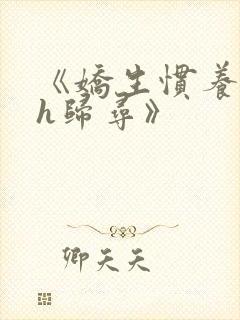 《嬌生慣養
h歸尋》
卿天天